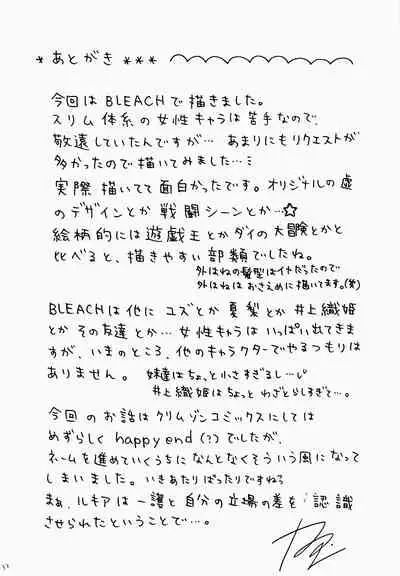 *あとがき***
今回はBLEACHで描きました。
スリム体系の女性キャラは苦手なので、
敬遠していたんですが… あまりにもリクエストが
多かったので描いてみました…
実際描いてて面白かったです。オリジナルの虚
のデザインとか戦闘シーンとか…☆
絵柄的には遊戯王とかダイの大冒険とかと
比べると、描きやすい部類でしたね。
外はねの髪型はイヤだったので
外はねはおさえめに描いてます。(笑)
BLEACHは他にユズとか夏梨とか井上織姫
とかその友達とか…女性キャラはいっぱい出てきま
すが、いまのところ、他のキャラクターでやるつもりは
ありません。 妹達はちょっと小さすぎるし…
井上織姫はちょっとわざとらしすぎて…。
今回のお話はクリムゾンコミックスにしては
めずらしく happy end (??) でしたが、
ネームを進めていくうちになんとなくそういう風になって
しまいました。いきあたりばったりですねぇ
まぁ、ルキアは一護と自分の立場の差を認識
させられたということで…。